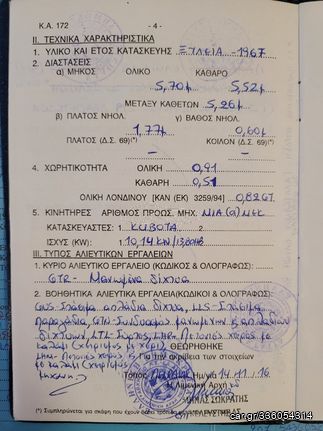 Κ.Α. 172 - 4 -
ΙΙ. ΤΕΧΝΙΚΑ ΧΑΡΑΚΤΗΡΙΣΤΙΚΑ
1. ΥΛΙΚΟ ΚΑΙ ΕΤΟΣ ΚΑΤΑΣΚΕΥΗΣ ΞΥΛΕΙΑ - 1967
2. ΔΙΑΣΤΑΣΕΙΣ
α) ΜΗΚΟΣ ΟΛΙΚΟ ΚΑΘΑΡΟ
5,70μ 5,52μ
ΜΕΤΑΞΥ ΚΑΘΕΤΩΝ 5,26μ
β) ΠΛΑΤΟΣ ΝΗΟΛ. γ) ΒΑΘΟΣ ΝΗΟΛ.
1,77μ 0,60μ
ΠΛΑΤΟΣ (Δ.Σ. 69)(*) ΚΟΙΛΟΝ (Δ.Σ. 69)(*)
4. ΧΩΡΗΤΙΚΟΤΗΤΑ ΟΛΙΚΗ 0,91
ΚΑΘΑΡΗ 0,51
ΟΛΙΚΗ ΛΟΝΔΙΝΟΥ [ΚΑΝ (ΕΚ) 3259/94] 0,8267
5. ΚΙΝΗΤΗΡΕΣ ΑΡΙΘΜΟΣ ΠΡΟΩΣ. ΜΗΧ. ΜΙΑ (1) ΜΕΚ
ΚΑΤΑΣΚΕΥΑΣΤΕΣ: 1. KUBOTA 2.
ΙΣΧΥΣ (KW): 10,14KW/13,80HB
ΙΙΙ. ΤΥΠΟΣ ΑΛΙΕΥΤΙΚΩΝ ΕΡΓΑΛΕΙΩΝ
1. ΚΥΡΙΟ ΑΛΙΕΥΤΙΚΟ ΕΡΓΑΛΕΙΟ (ΚΩΔΙΚΟΣ & ΟΛΟΓΡΑΦΩΣ):
GTR - Μανωμένα δίχτυα
2. ΒΟΗΘΗΤΙΚΑ ΑΛΙΕΥΤΙΚΑ ΕΡΓΑΛΕΙΑ(ΚΩΔΙΚΟΙ & ΟΛΟΓΡΑΦΩΣ):
GNS Στάσιμα απλάδια δίχτυα, LLS - Στάσιμα
Παραγάδια, GTN - Συνδυασμός μανωμένων & απλάδιων
διχτυών, LTL - Συρτές, LHP - Πετονιές χειρός με
καλάμι (χειρισμός με χέρι), ΘΕΩΡΗΘΗΚΕ
LHM - Πετονιές χειρός Για την ακρίβεια των στοιχείων
με καλάμι (χειρισμός
μηχανή) Τόπος Ημ/νία 14.11.16
Η Λιμενική Αρχή
ΣΩΚΡΑΤΗΣ
(*) Συμπληρώνεται για σκάφη που έχουν